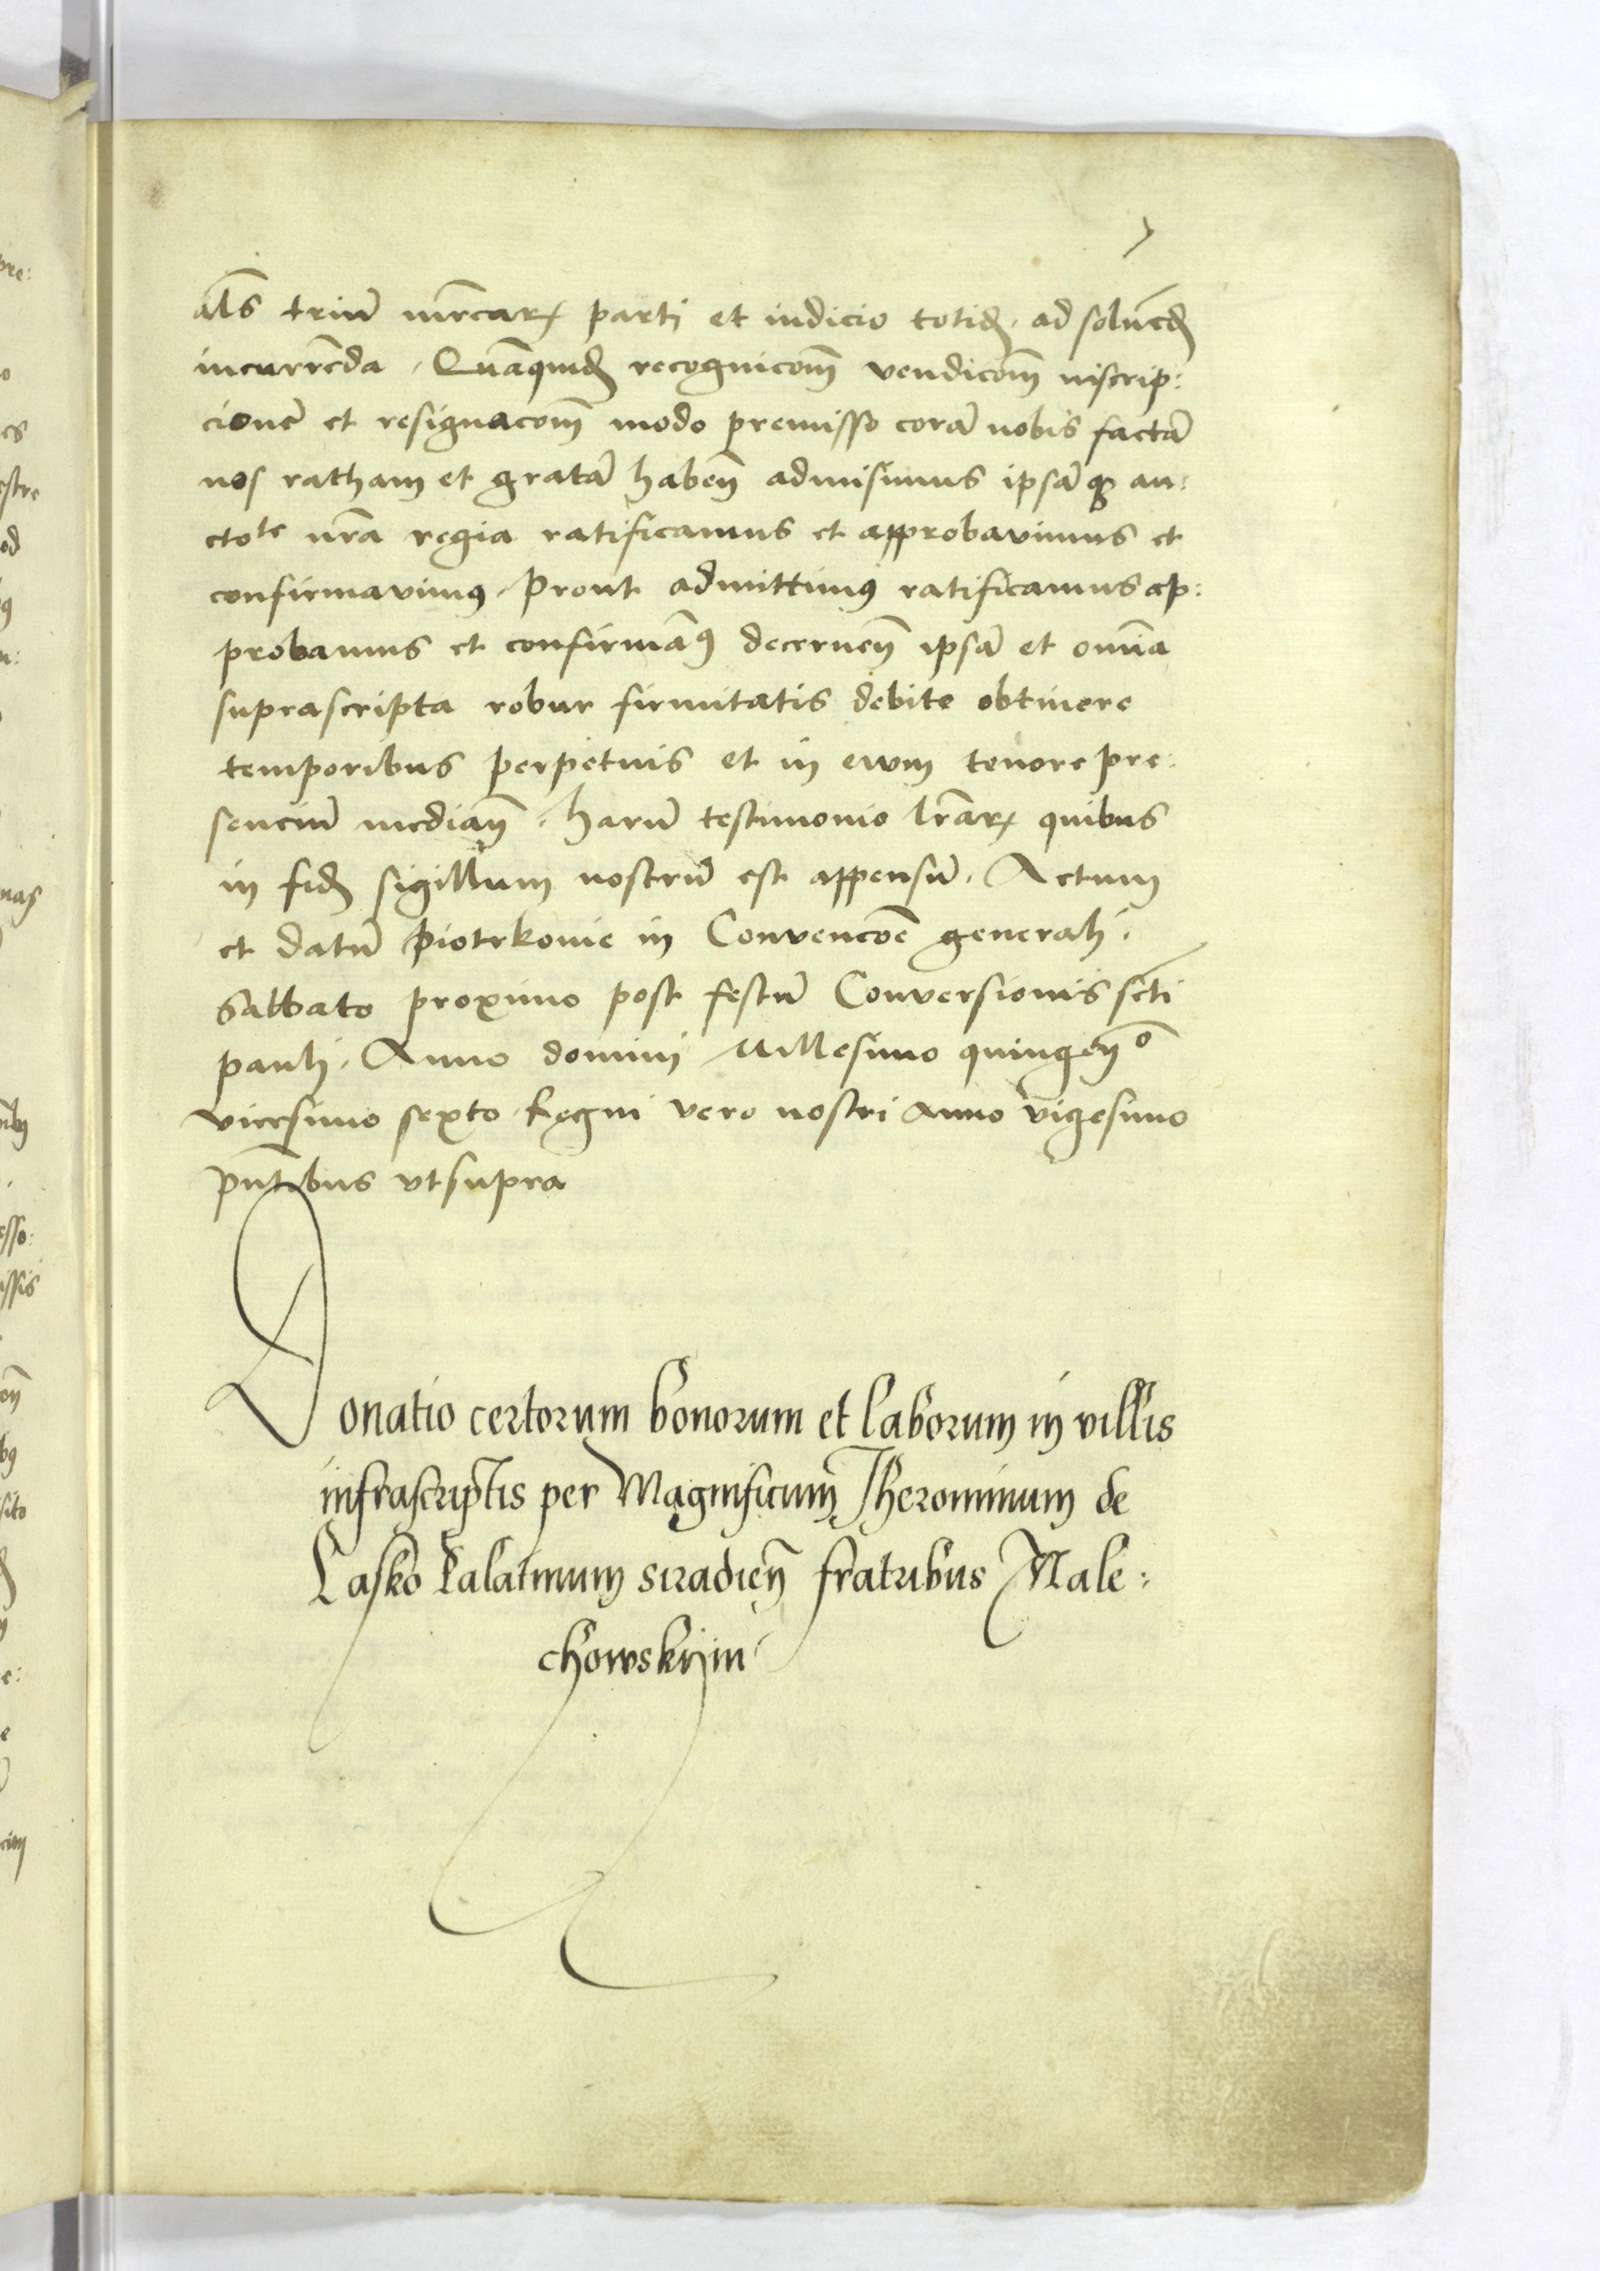 7
als triũ mrcarꝝ parti et iudicio totid. ad soluẽd
incurrẽda. Quãquid recognicom̃ vendicom̃ inscrip:
cionẽ et resignacom̃ modo premisso corã nobis factã
nos ratham et gratã habeñ admisimus ipsãqꝫ au:
ctote nr̃a regia ratificamus et approbavimus et
confirmavimꝰ. Prout admittimꝰ ratificamus ap:
probamus et confirmãꝰ decerneñ ipsã et om̃ia
suprascripta robur firmitatis debite obtinere
temporibus perpetuis et in ewm tenore pre:
senciũ mediañ. harũ testimonio lr̃arꝝ quibus
in fid sigillum nostrũ est appensũ. Actum
et datũ Piotrkovie in Convencõe generali.
Sabbato proximo post festũ Conversionis scti
pauli. Anno domini Millesimo quingeñº
vicesimo sexto Regni vero nostri Anno vigesimo
pñtibus vt supra
Donatio certorum bonorum et laborum in villis
infrascriptis per Magnificum Jheronimum de
Lasko Palatinum siradieñ fratribus Male:
chowskijm